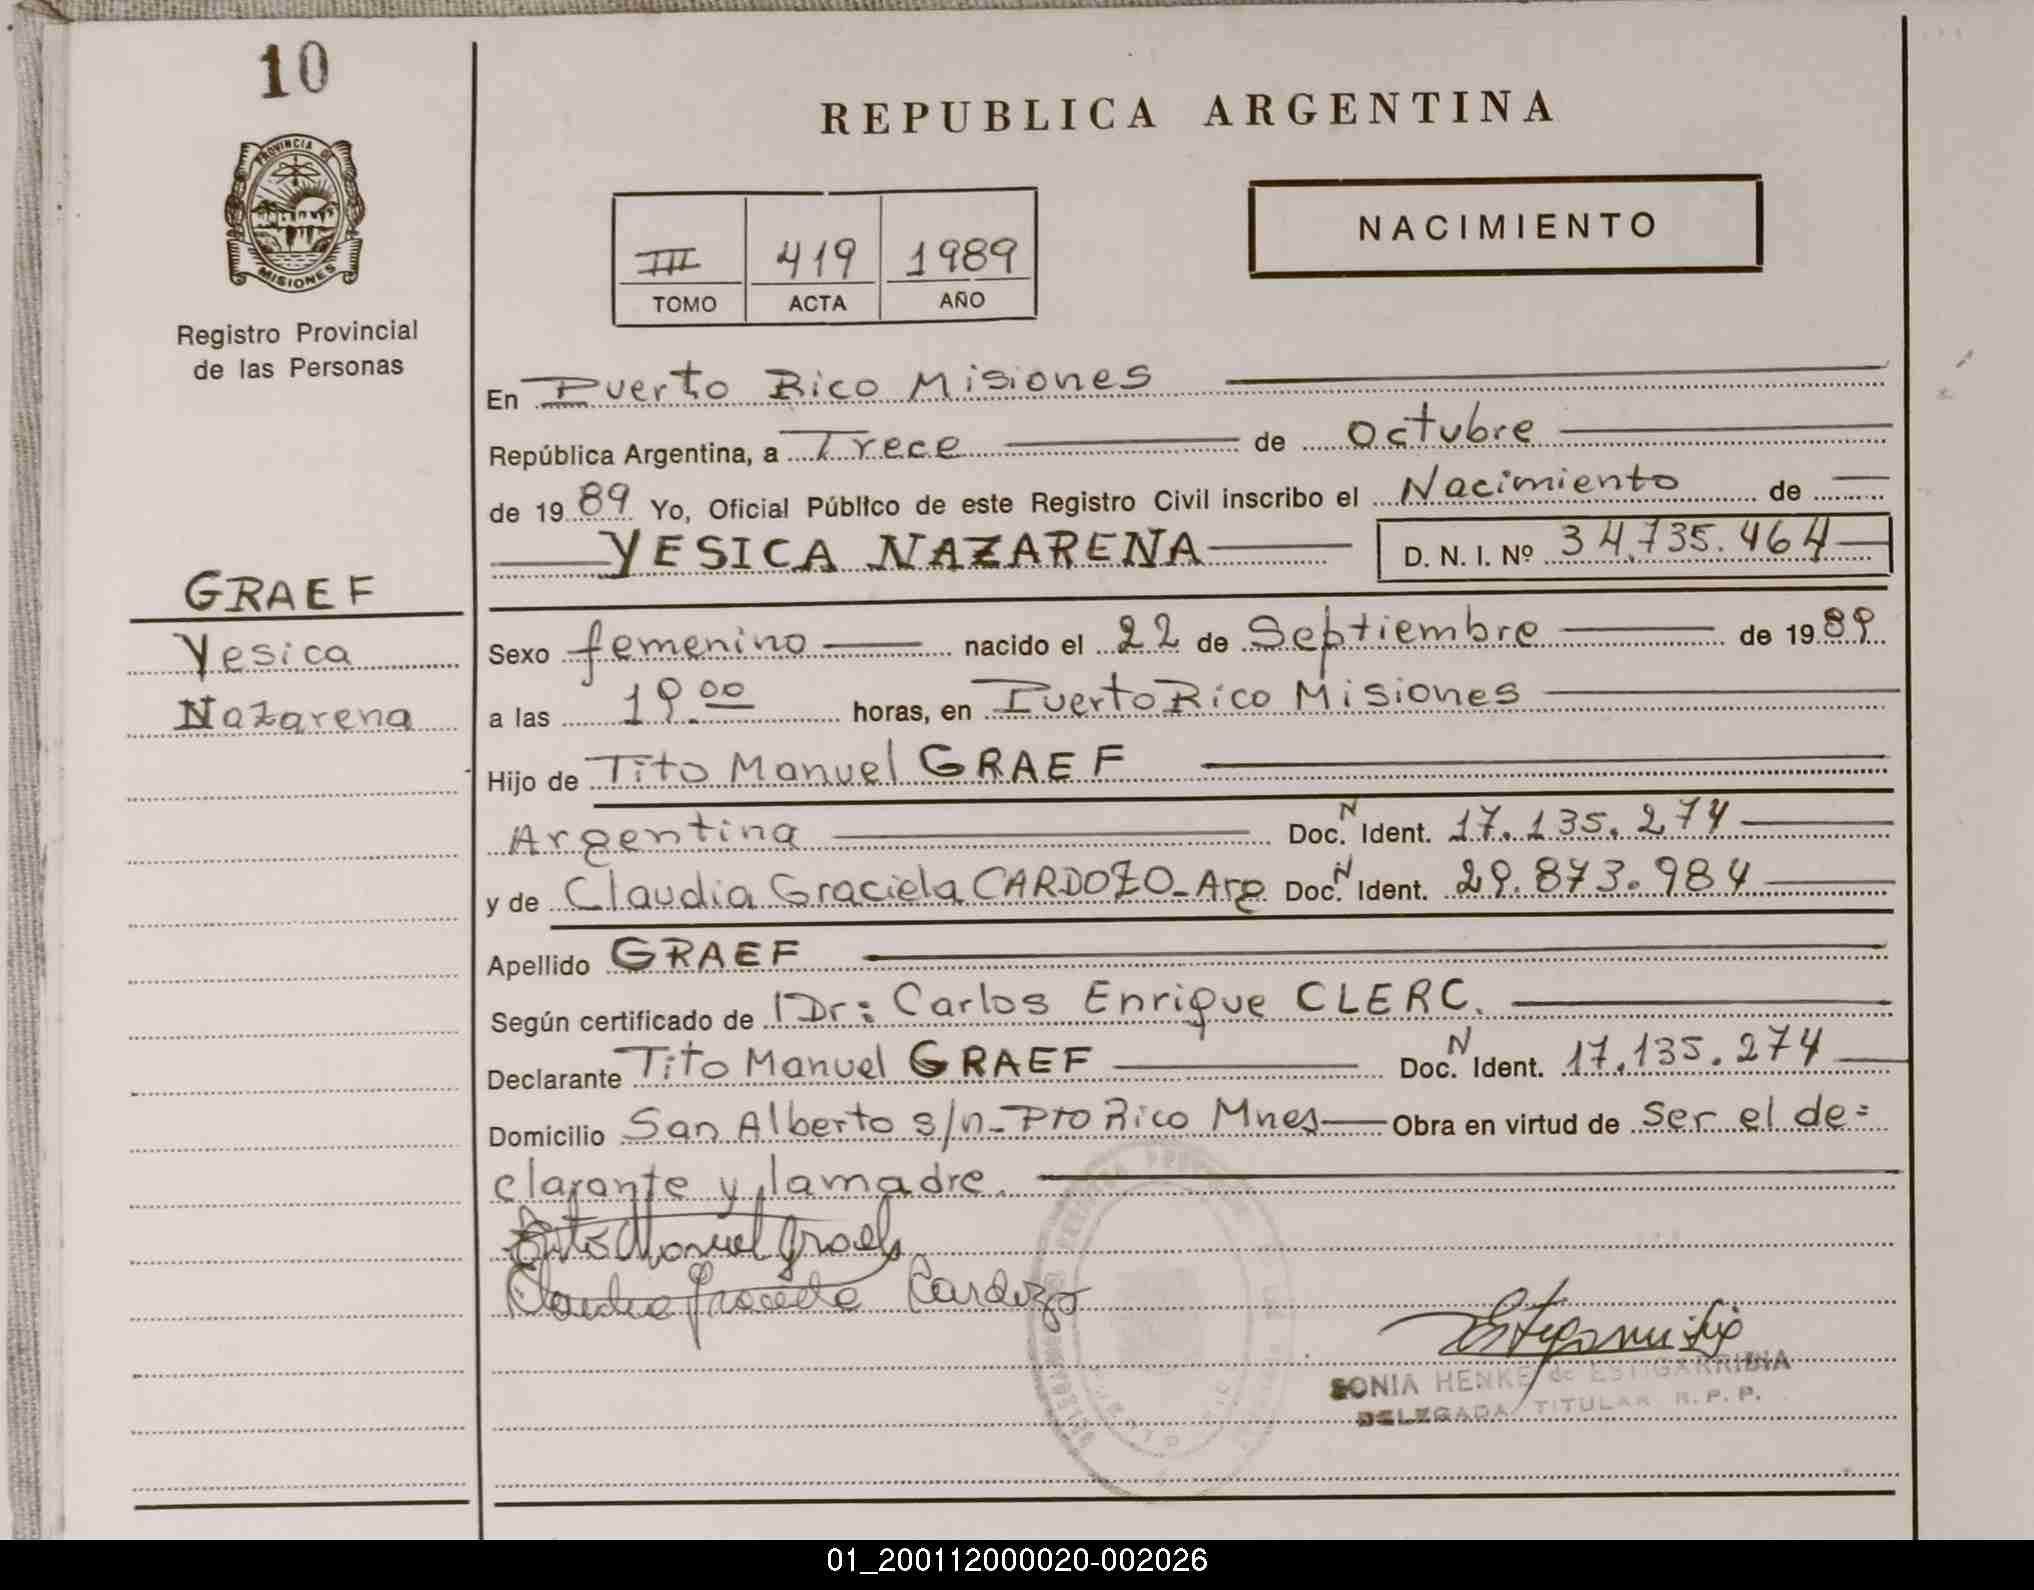 10
REPUBLICA ARGENTINA
PROVINCIA DE
MISIONES
Registro Provincial
de las Personas
III 419 1989
TOMO ACTA AÑO
NACIMIENTO
En Puerto Rico Misiones
República Argentina, a Trece de octubre
de 1989 Yo, Oficial Público de este Registro Civil inscribo el Nacimiento de
YESICA NAZARENA D. N. I. Nº 34.735.464
GRAEF
Yesica
Nazarena
Sexo femenino nacido el 22 de Septiembre de 1989
a las 19.00 horas, en Puerto Rico Misiones
Hijo de Tito Manuel GRAEF
Argentina Doc. N Ident. 17.135.274
y de Claudia Graciela CARDOZO - Arg Doc. N Ident. 29.873.984
Apellido GRAEF
Según certificado de Dr: Carlos Enrique CLERC.
Declarante Tito Manuel GRAEF Doc. N Ident. 17.135.274
Domicilio San Alberto s/n - Pto Rico Mnes Obra en virtud de Ser el de=
clarante y la madre.
Tito Manuel Graef
Claudia Graciela Cardozo
SONIA HENKE de ESTIGARRIBIA
DELEGADA TITULAR R. P. P.
01_200112000020-002026